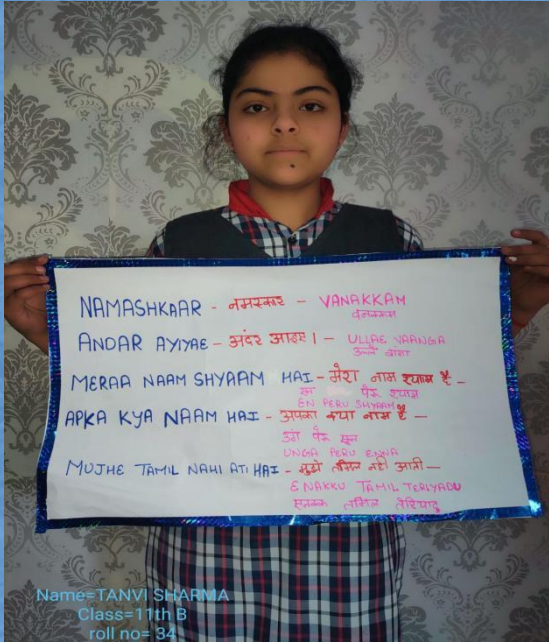 NAMASHKAAR - नमस्कार - VANAKKAM
वनक्कम
ANDAR AYIYAE - अंदर आइए। - ULLAE VAANGA
उल्ले वांगा
MERAA NAAM SHYAAM HAI - मेरा नाम श्याम है -
एन पैरू श्याम
EN PERU SHYAAM
APKA KYA NAAM HAI - आपका क्या नाम है -
उंगा पैरू एन्न
UNGA PERU ENNA
MUJHE TAMIL NAHI ATI HAI - मुझे तमिल नही आती -
ENAKKU TAMIL TERIYADU
एनक्कु तमिल तेरियादु
Name=TANVI SHARMA
Class=11th B
roll no= 34